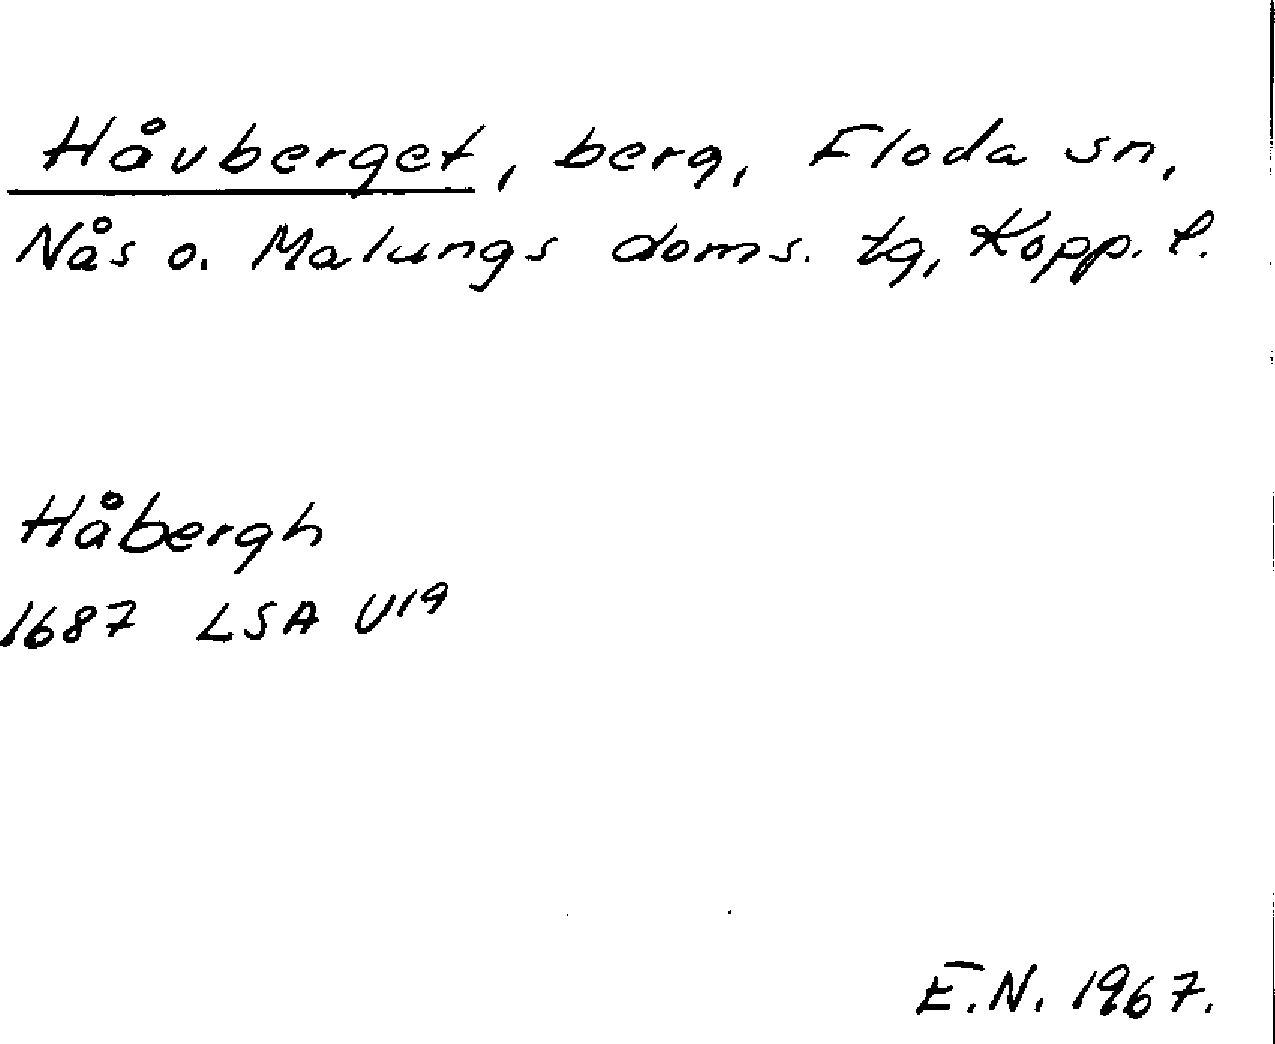 Håvberget, berg, Floda sn,
Nås o. Malungs doms. tg, Kopp. l.
Håbergh
1687 LSA U19
E.N. 1967.